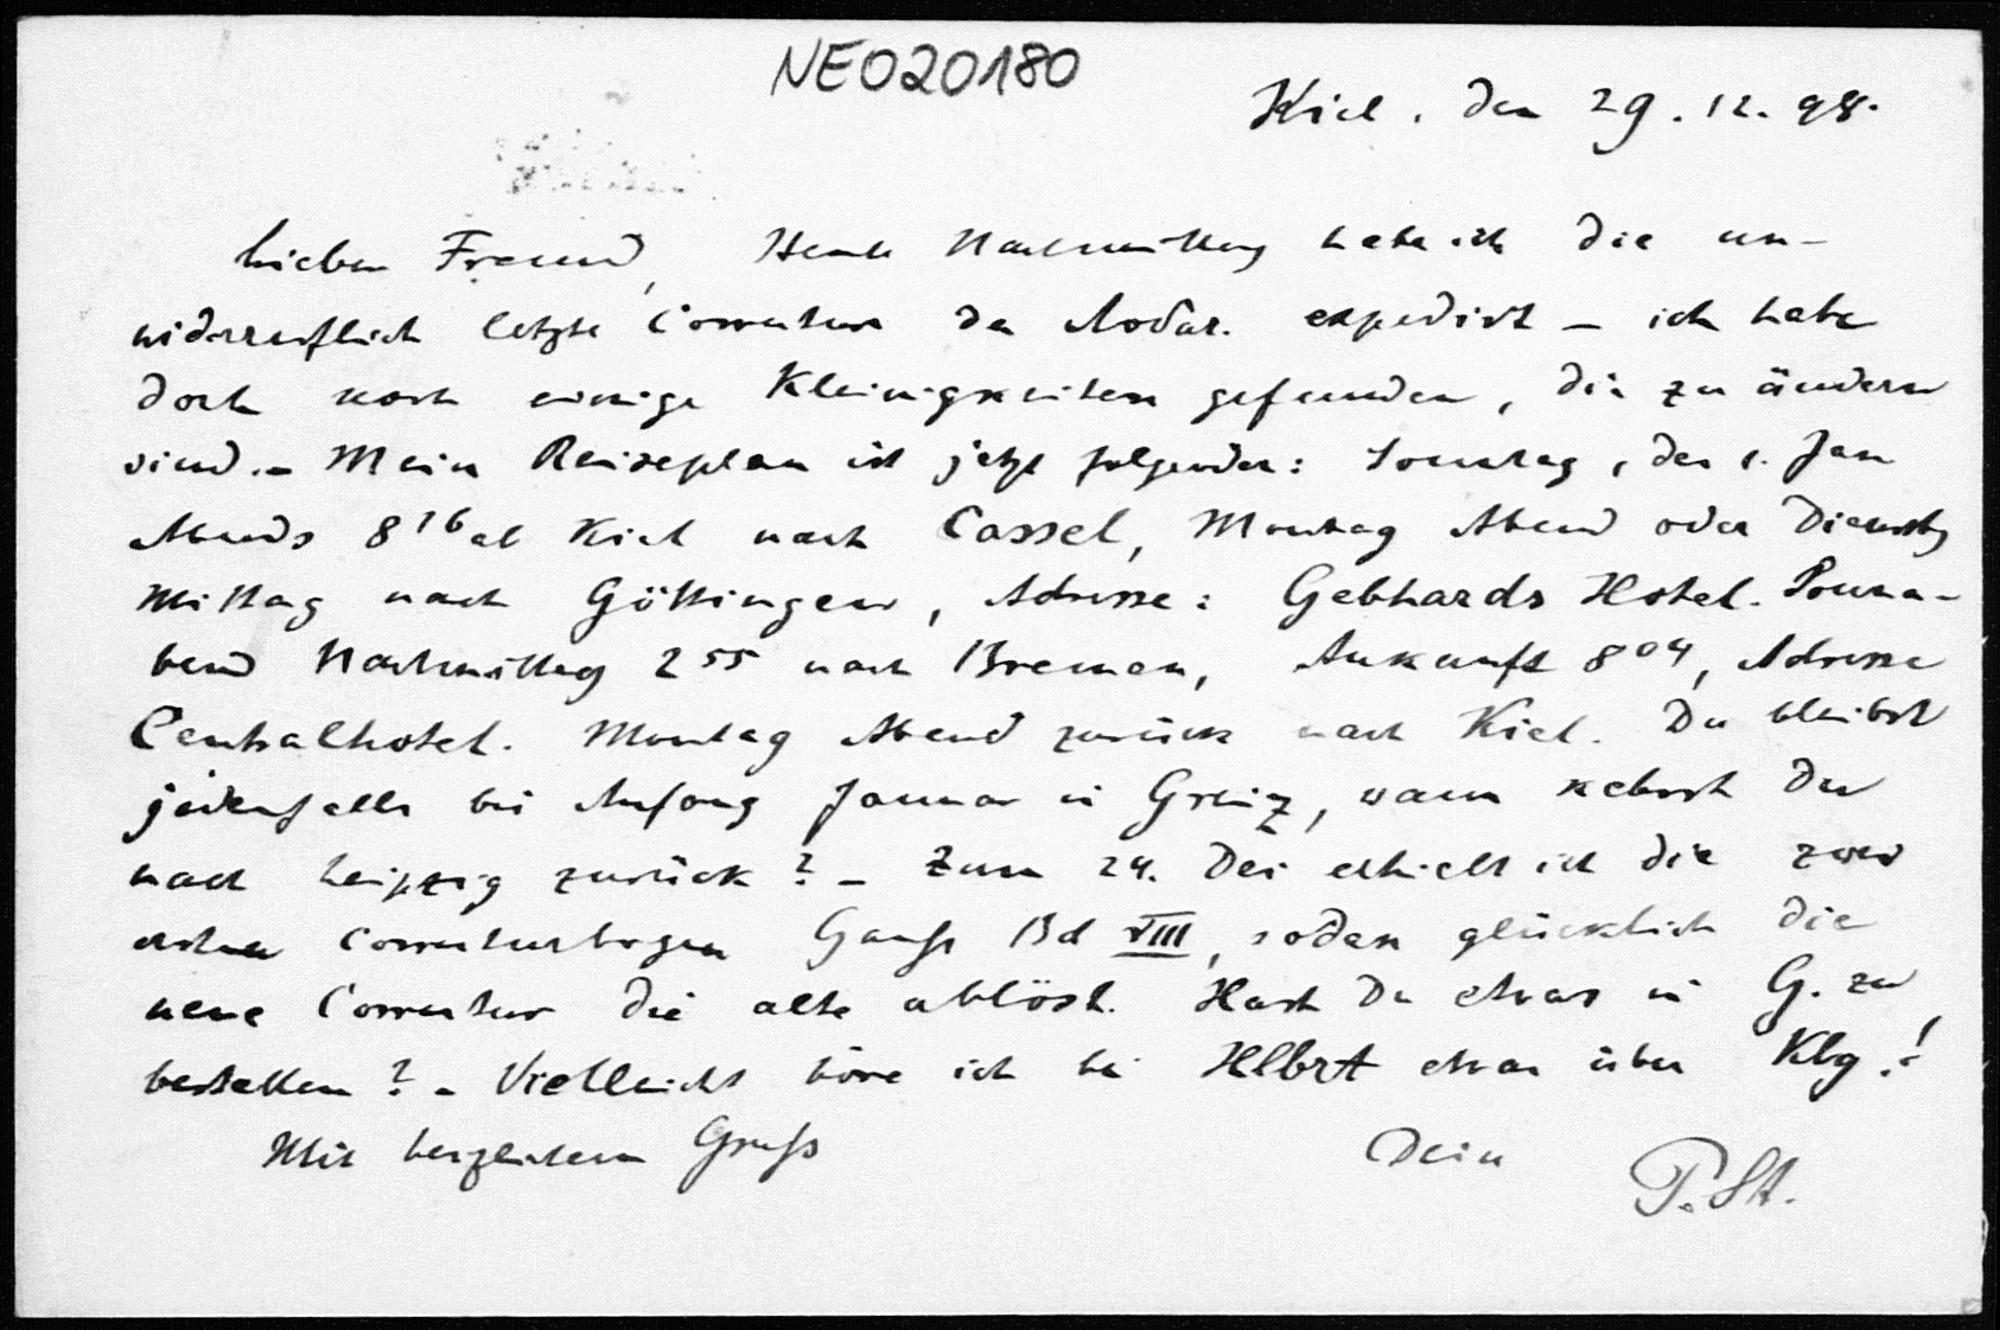 NE020180
Kiel, den 29. 12. 98.
Lieber Freund, Heute Nachmittag habe ich die un-
widerruflich letzte Correctur der expedirt – ich habe
doch noch einige Kleinigkeiten gefunden, die zu ändern
sind. – Mein Reiseplan ist jetzt folgender: Sonntag, den 1. Jan
Abends 8 16 ab Kiel nach Cassel, Montag Abend oder Dienstag
Mittag nach Göttingen, Adresse: Gebhards Hotel. Sonna-
bend Nachmittag 2 55 nach Bremen, Ankunft 8 04, Adresse
Centralhotel. Montag Abend zurück nach Kiel. Du bleibst
jedenfalls bis Anfang Januar in Greiz, wann kehrst Du
nach Leipzig zurück? – Zum 24. Dec erhielt ich die zwei
ersten Correcturbogen Gauß Bd VIII, sodass glücklich die
neue Correctur die alte ablöst. Hast Du etwas in G. zu
bestellen? – Vielleicht höre ich bei Hlbrt etwas über Klbg.!
Mit herzlichem Gruß Dein P. St.